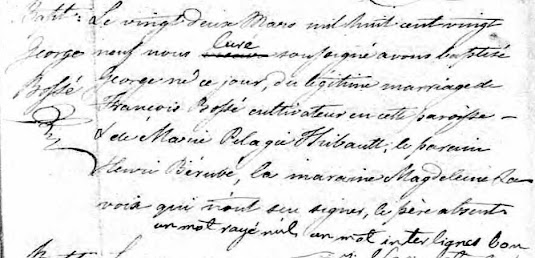 Bapt: Le vingt deux Mars mil huit cent vingt
George neuf nous Curé soussigné avons baptisé
Bossé George né ce jour, du légitime marriage de
François Bossé cultivateur en cette paroisse
& de Marie Pelagie Thibault; le parain
Henri Bérubé, la maraine Magdeleine La
voix qui n'ont seu signer, le père absent
un mot rayé nul un mot interlignes bon